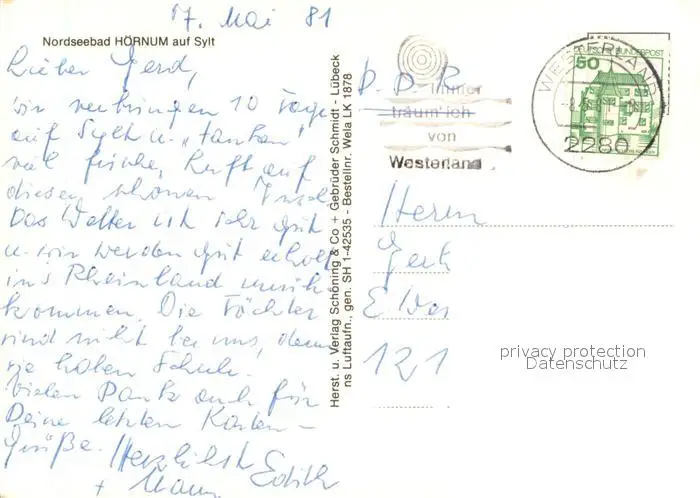 7. Mai 81
Nordseebad HÖRNUM auf Sylt
Lieber Gerd,
wir verbringen 10 Tage
auf Sylt u. "tanken"
viel frische Luft auf
dieser schönen Insel
Das Wetter ist sehr gut
u. wir werden gut erholt
ins Rheinland zurück
kommen. Die Töchter
sind nicht bei uns, denn
sie haben Schule.
Vielen Dank auch für
Deine letzten Karten-
grüße. Herzlichst Edith
+ Mann
Herst. u. Verlag Schöning & Co + Gebrüder Schmidt - Lübeck
ns Luftaufn., gen. SH 1-42535 - Bestellnr. Wela LK 1878
D. D. R.
immer
träum' ich
von
Westerland
WESTERLAND
2280
DEUTSCHE BUNDESPOST
50
Herrn
121
privacy protection
Datenschutz